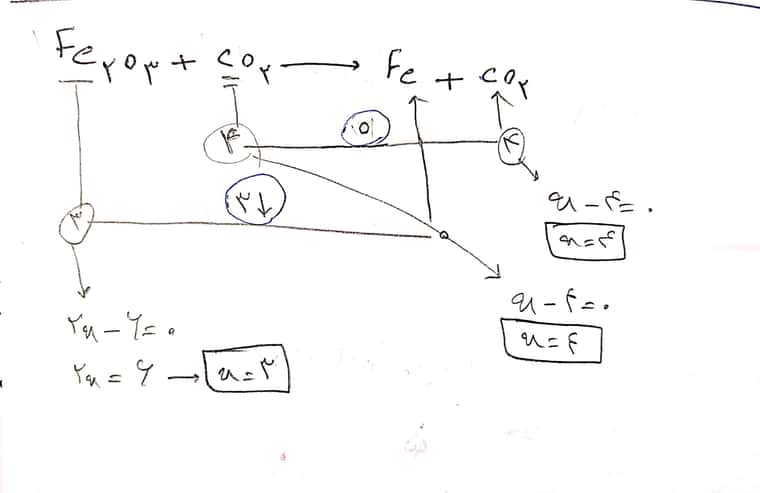 Fe۲O۳ + CO۲ → Fe + CO۲
۴ ۰ ۴
۳ ۳↓ ۰
x − ۴ = ۰
x = ۴
x − ۴ = ۰
x = ۴
۲x − ۶ = ۰
۲x = ۶ → x = ۳